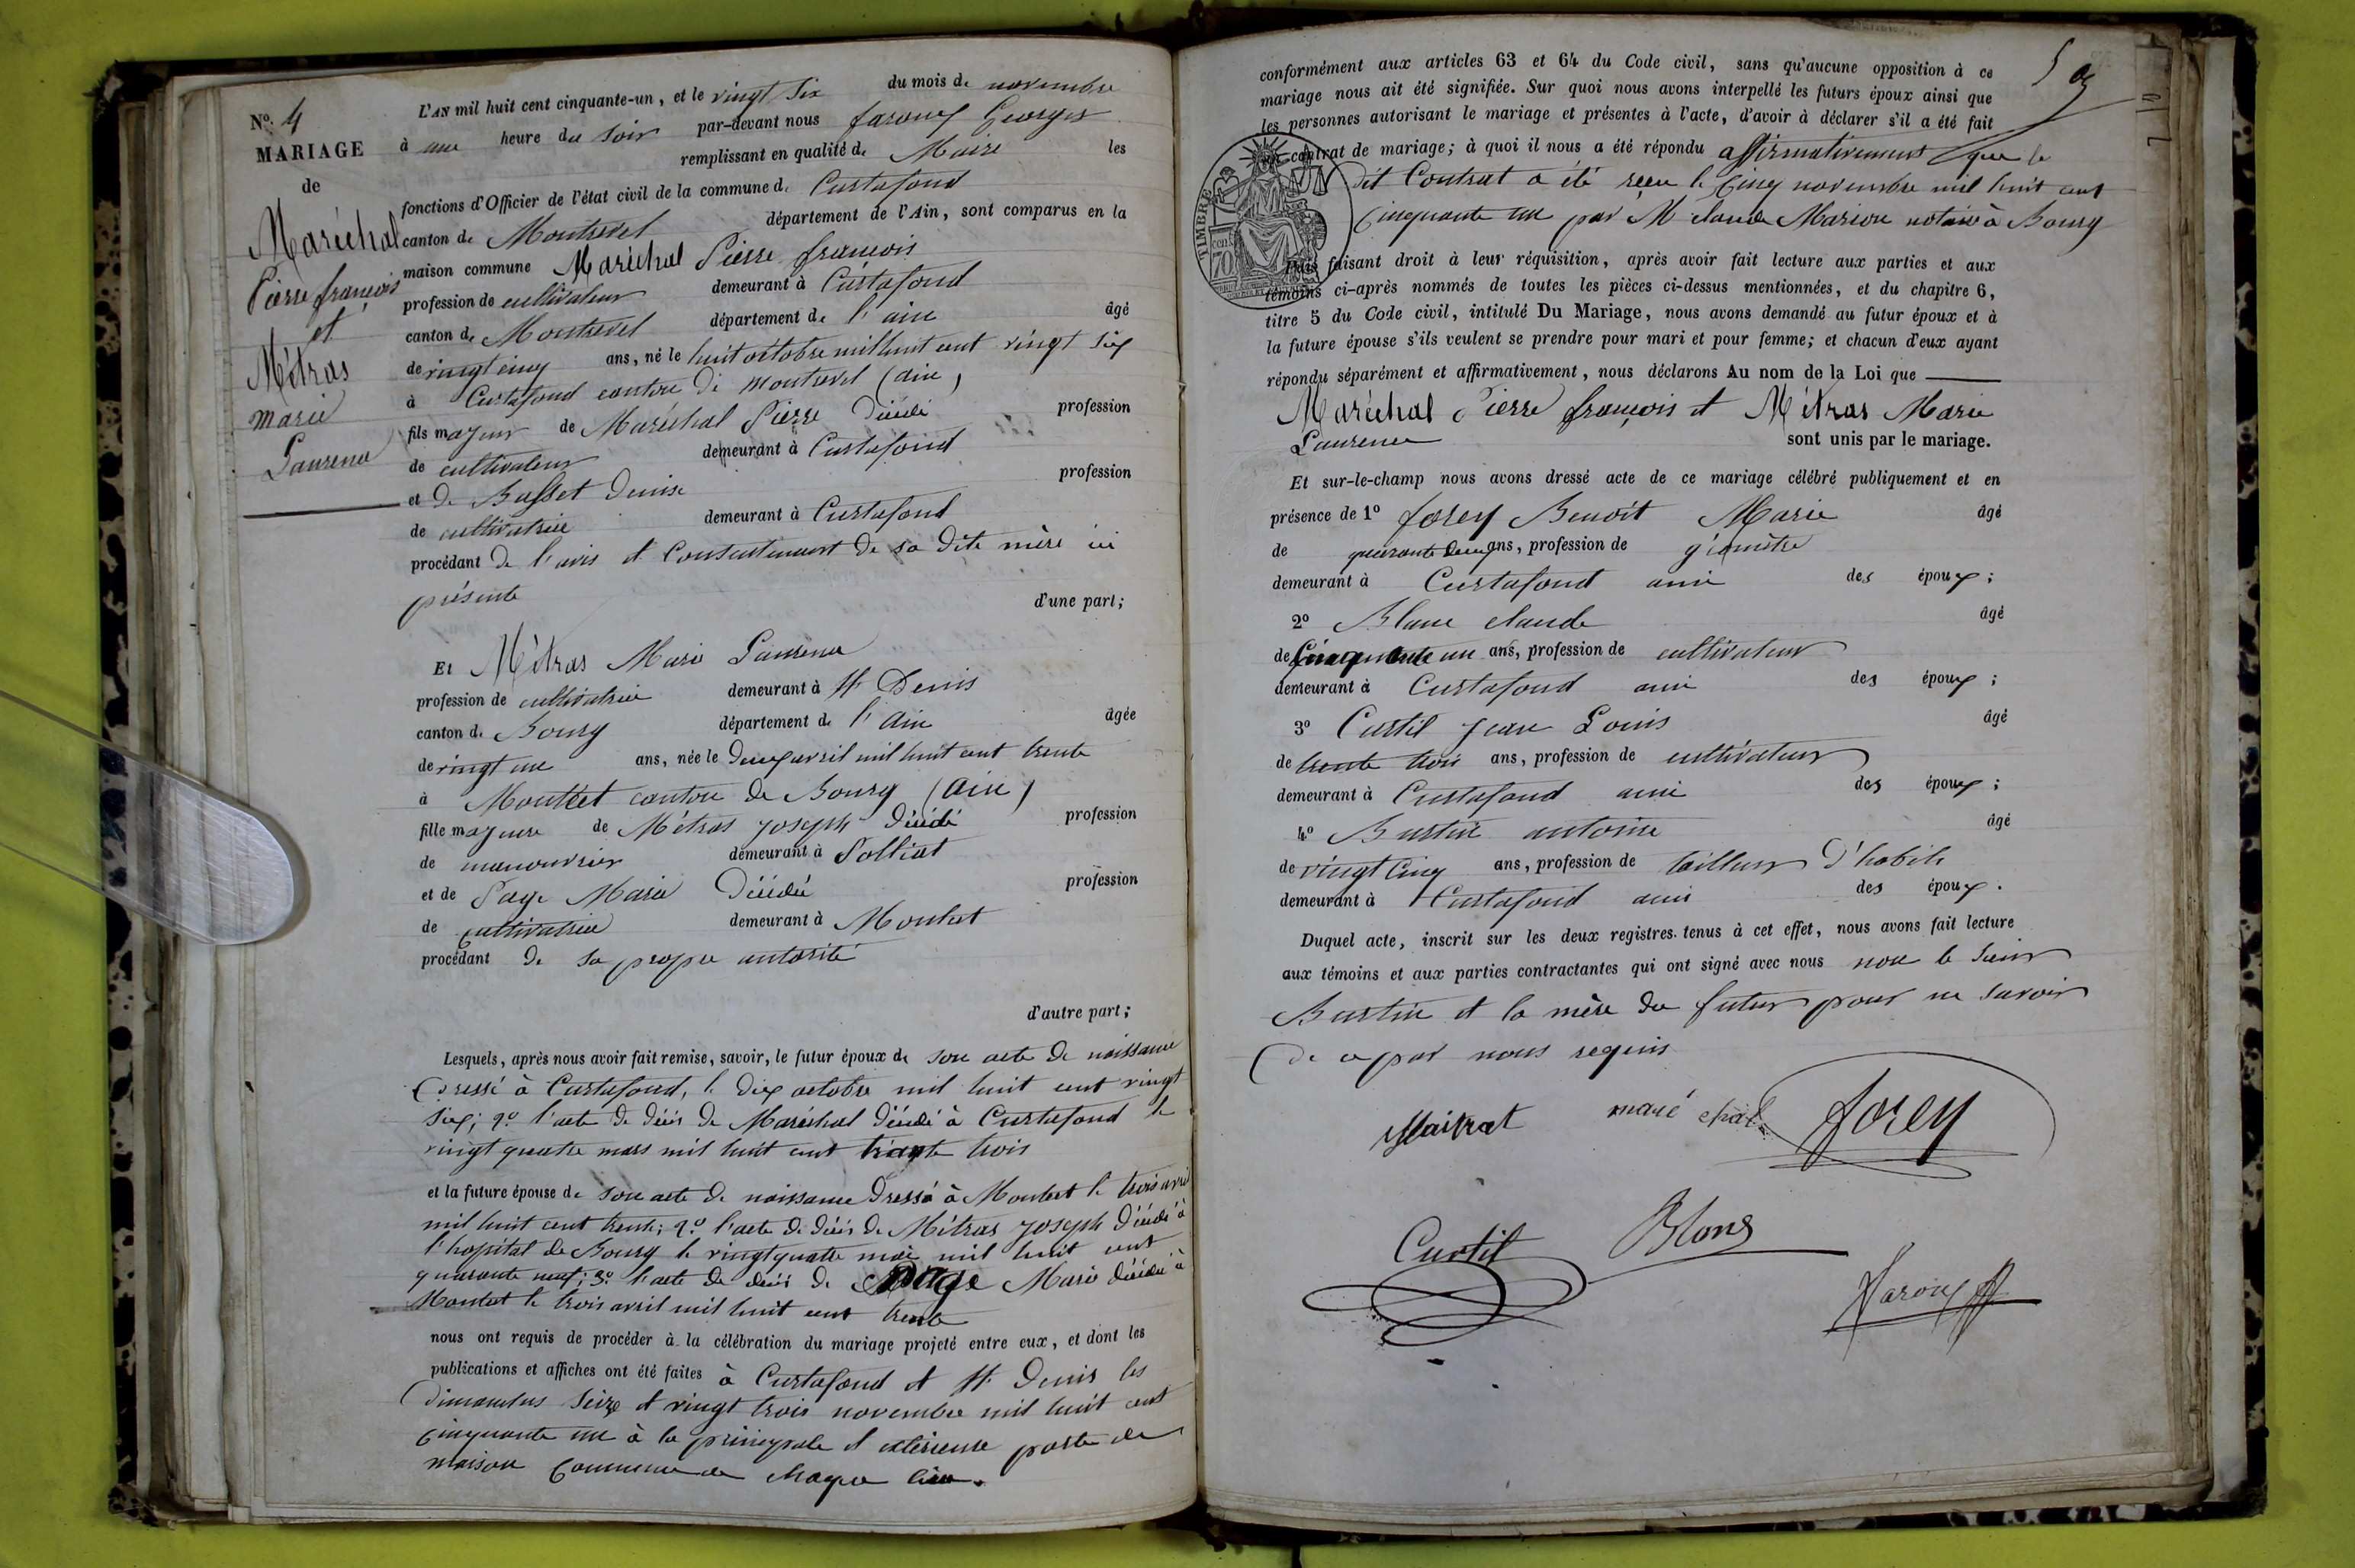 N° 4
MARIAGE
de
Maréchal
Pierre françois
et
Métras
Marie
Laurence
L'AN mil huit cent cinquante-un, et le vingt six du mois de novembre
à une heure du soir par-devant nous faroux Georges
remplissant en qualité de Maire les
fonctions d'Officier de l'état civil de la commune de Curtafond
canton de Montrevel département de l'Ain, sont comparus en la
maison commune Maréchal Pierre françois
profession de cultivateur demeurant à Curtafond
canton de Montrevel département de l'ain âgé
de vingt cinq ans, né le huit octobre mil huit cent vingt six
à Curtafond canton de montrevel (ain)
fils majeur de Maréchal Pierre décédé profession
de cultivateur demeurant à Curtafond
et de Basset Denise profession
de cultivatrice demeurant à Curtafond
procédant de l'avis et Consentement de sa dite mère ici
présente d'une part;
Et Métras Marie Laurence
profession de cultivatrice demeurant à St Denis
canton de Bourg département de l'Ain âgée
de vingt un ans, née le deux avril mil huit cent trente
à Montcet canton de Bourg (Ain)
fille majeure de Métras Joseph décédé profession
de manouvrier demeurant à Polliat
et de Page Marie Décédée profession
de cultivatrice demeurant à Montcet
procédant de sa propre autorité
d'autre part;
Lesquels, après nous avoir fait remise, savoir, le futur époux de son acte de naissance
Dressé à Curtafond, le dix octobre mil huit cent vingt
six; 2° l'acte de décès de Maréchal décédé à Curtafond le
vingt quatre mars mil huit cent trente trois
et la future épouse de son acte de naissance Dressé à Montcet le trois avril
mil huit cent trente; 2° l'acte de décès de Métras Joseph décédé à
l'hopital de Bourg le vingt quatre mai mil huit cent
quarante neuf; 3° l'acte de décès de Page Marie décédée à
Montcet le trois avril mil huit cent trente
nous ont requis de procéder à la célébration du mariage projeté entre eux, et dont les
publications et affiches ont été faites à Curtafond et St Denis les
Dimanches seize et vingt trois novembre mil huit cent
cinquante un à la principale et extérieure porte de
maison Commune de chaque lieu.
conformément aux articles 63 et 64 du Code civil, sans qu'aucune opposition à ce
mariage nous ait été signifiée. Sur quoi nous avons interpellé les futurs époux ainsi que
les personnes autorisant le mariage et présentes à l'acte, d'avoir à déclarer s'il a été fait
un contrat de mariage; à quoi il nous a été répondu affirmativement que le
dit Contrat a été reçu le cinq novembre mil huit cent
cinquante un par M claude Marion notaire à Bourg
TIMBRE
70
Puis faisant droit à leur réquisition, après avoir fait lecture aux parties et aux
témoins ci-après nommés de toutes les pièces ci-dessus mentionnées, et du chapitre 6,
titre 5 du Code civil, intitulé Du Mariage, nous avons demandé au futur époux et à
la future épouse s'ils veulent se prendre pour mari et pour femme; et chacun d'eux ayant
répondu séparément et affirmativement, nous déclarons Au nom de la Loi que
Maréchal Pierre françois et Métras Marie
Laurence sont unis par le mariage.
Et sur-le-champ nous avons dressé acte de ce mariage célébré publiquement et en
présence de 1° forey Benoit Marie âgé
de quarante deux ans, profession de géomètre
demeurant à Curtafond ami des époux;
2° Blanc claude âgé
de Cinquante un ans, profession de cultivateur
demeurant à Curtafond ami des époux;
3° Curtil Jean Louis âgé
de trente trois ans, profession de cultivateur
demeurant à Curtafond ami des époux;
4° Bustin antoine âgé
de vingt cinq ans, profession de tailleur d'habits
demeurant à Curtafond ami des époux.
Duquel acte, inscrit sur les deux registres tenus à cet effet, nous avons fait lecture
aux témoins et aux parties contractantes qui ont signé avec nous non le sieur
Bustin et la mère du futur pour ne savoir
de ce par nous requis
Maitrat maré chal forey
Curtil Blanc
Faroux